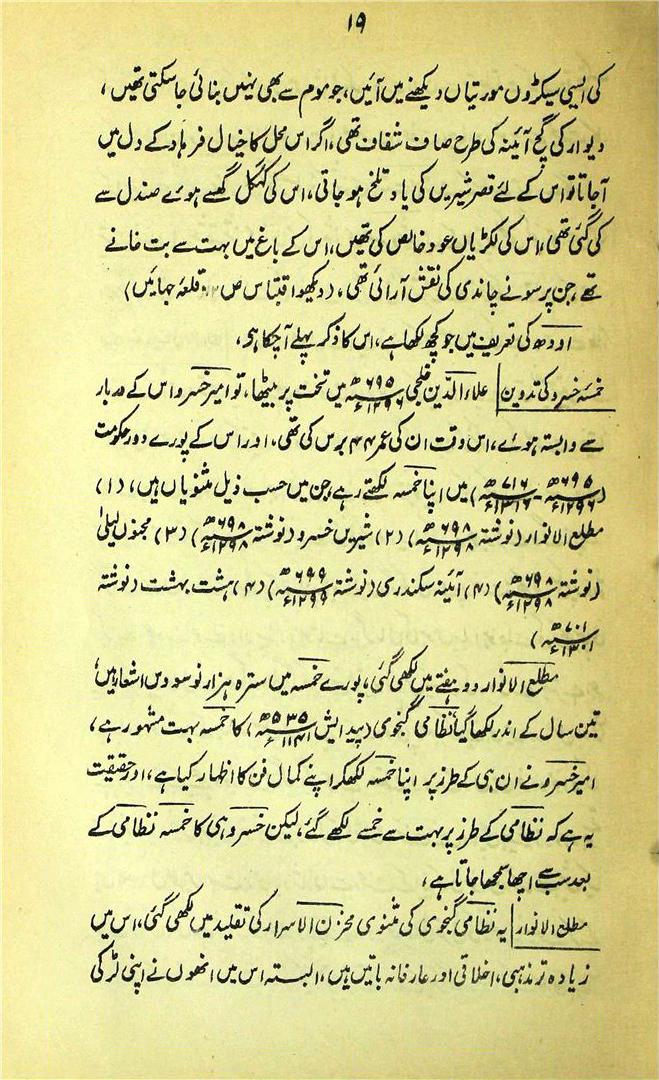 ۱۹
کی ایسی سیکڑوں مورتیاں دیکھنے میں آئیں، جو موم سے بھی نہیں بنائی جاسکتی تھیں،
دیوار کی گچ آئینہ کی طرح صاف شفاف تھی، اگر اس محل کا خیال فرہاد کے دل میں
آجاتا تو اس کے لئے قصر شیریں کی یاد تلخ ہو جاتی، اس کی کہگل گھسے ہوے صندل سے
کی گئی تھی، اس کی لکڑیاں عود خالص کی تھیں، اس کے باغ میں بہت سے بت خانے
تھے، جن پر سونے چاندی کی نقش آرائی تھی، (دیکھو اقتباس ص قلعۂ جہاین)
اودھ کی تعریف میں جو کچھ لکھا ہے، اس کا ذکر پہلے آچکا ہی،
خمسۂ خسرو کی تدوین علاء الدین خلجی ۶۹۵ھ ۱۲۹۶ء میں تخت پر بیٹھا، تو امیر خسرو اس کے دربار
سے وابستہ ہوے، اس وقت ان کی عمر ۴۴ برس کی تھی، اور اس کے پورے دور حکومت
(۶۹۵ھ ۱۲۹۶ء - ۷۱۶ھ ۱۳۱۶ء) میں اپنا خمسہ لکھتے رہے، جن میں حسب ذیل مثنویاں ہیں، (۱)
مطلع الانوار (نوشتہ ۶۹۸ھ ۱۲۹۸ء) (۲) شیریں خسرو (نوشتہ ۶۹۸ھ ۱۲۹۸ء) (۳) مجنوں لیلیٰ
(نوشتہ ۶۹۸ھ ۱۲۹۸ء) (۴) آئینۂ سکندری (نوشتہ ۶۹۹ھ ۱۲۹۹ء) (۴) ہشت بہشت (نوشتہ
۷۰۱ھ ۱۳۰۱ء)
مطلع الانوار دو ہفتے میں لکھی گئی، پورے خمسہ میں سترہ ہزار نو سو دس اشعار ہیں،
تین سال کے اندر لکھا گیا، نظامی گنجوی (پیدایش ۵۳۵ھ ۱۱۴۱ء) کا خمسہ بہت مشہور ہے،
امیر خسرو نے ان ہی کے طرز پر اپنا خمسہ لکھکر اپنے کمال فن کا اظہار کیا ہے، اور حقیقت
یہ ہے کہ نظامی کے طرز پر بہت سے خمسے لکھے گئے، لیکن خسرو ہی کا خمسہ نظامی کے
بعد سب سے اچھا سمجھا جاتا ہے،
مطلع الانوار یہ نظامی گنجوی کی مثنوی مخزن الاسرار کی تقلید میں لکھی گئی، اس میں
زیادہ تر مذہبی، اخلاقی اور عارفانہ باتیں ہیں، البتہ اس میں انھوں نے اپنی لڑکی